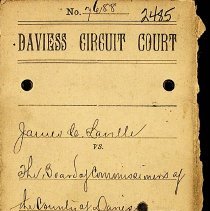 No. 7688
2485
DAVIESS CIRCUIT COURT
James C. Laville
VS.
The Board of Commissioners of
the County of Daviess